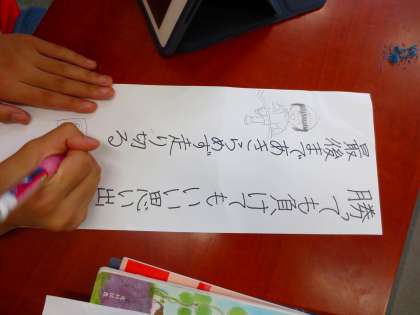 勝っても負けてもいい思い出
最後まであきらめず走り切る